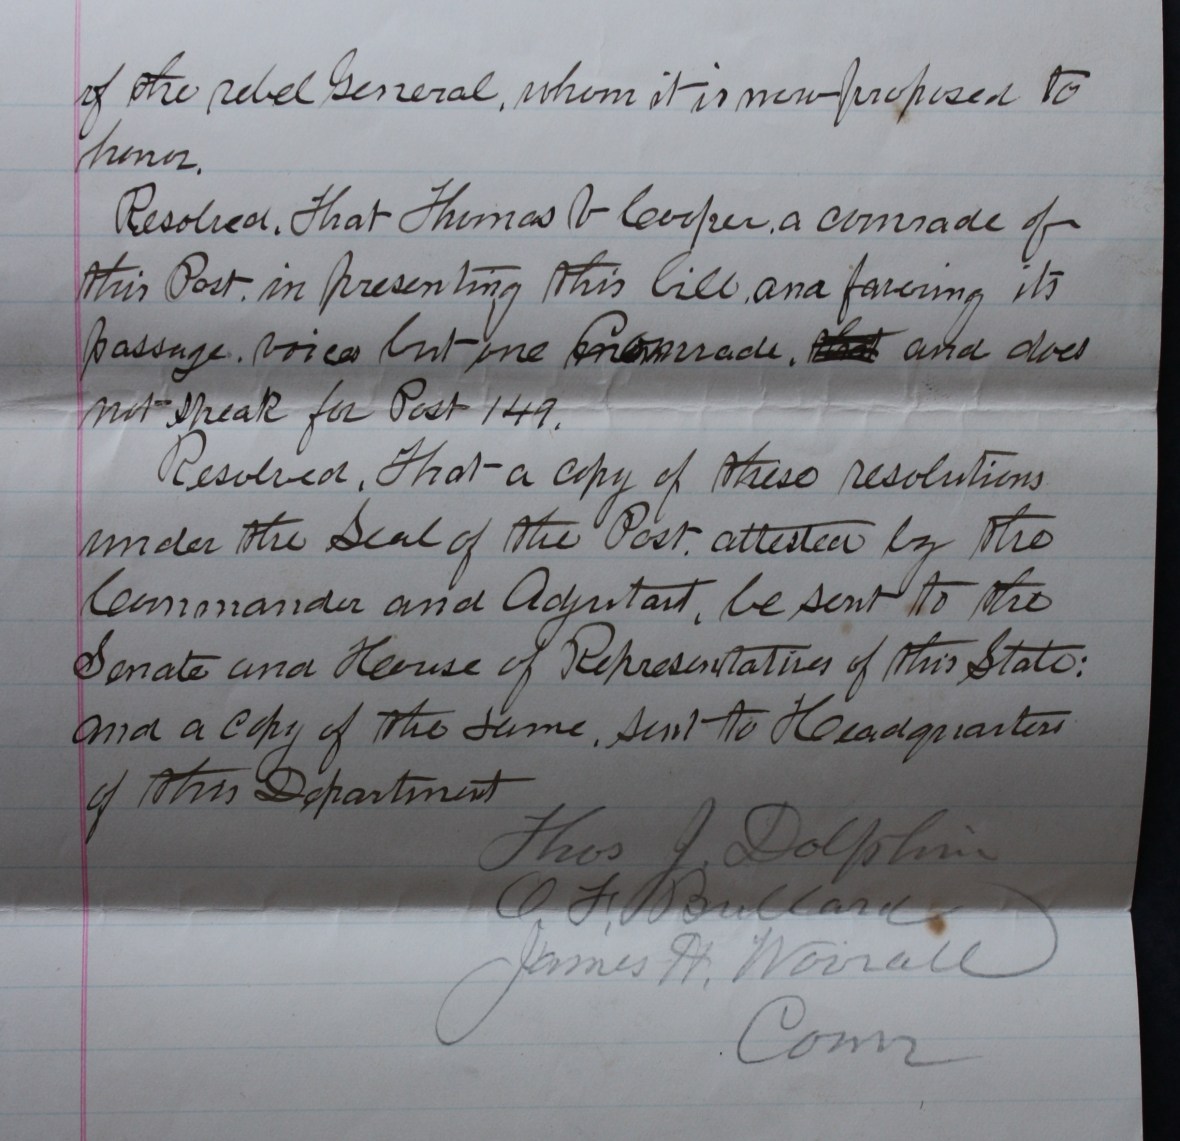 of the rebel General, whom it is now proposed to
honor.
Resolved, That Thomas V Cooper, a comrade of
this Post, in presenting this bill, and favoring its
passage, voices but one Comrade, and does
not speak for Post 149.
Resolved, That a copy of these resolutions
under the Seal of the Post, attested by the
Commander and Adjutant, be sent to the
Senate and House of Representatives of this State:
and a copy of the same, sent to Headquarters
of this Department
Thos J. Dolphin
O. F. Bullard
James H. Worrall
Com